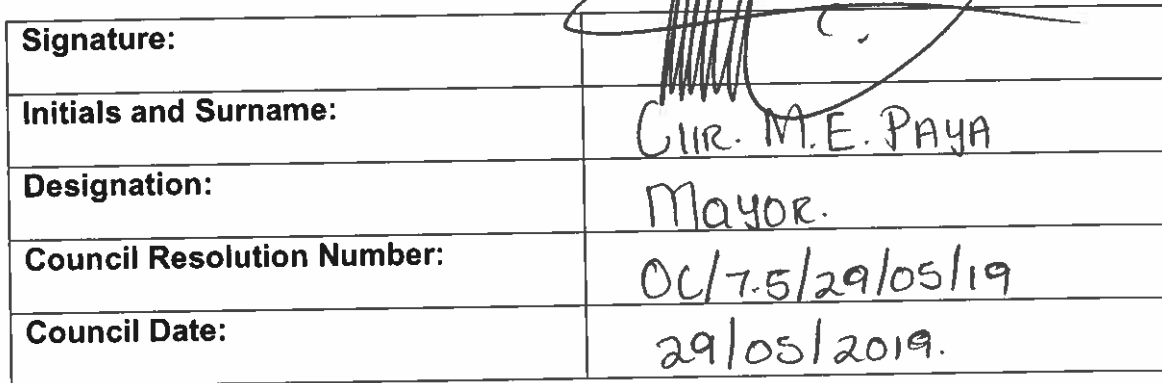 Signature:
Initials and Surname: Cllr. M.E. PAYA
Designation: Mayor.
Council Resolution Number: OC/7.5/29/05/19
Council Date: 29/05/2019.